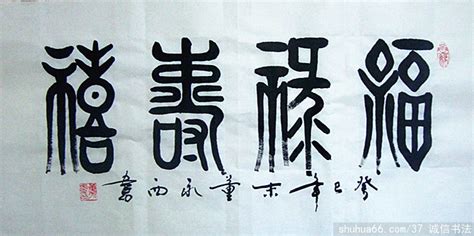 福祿壽禧
癸巳年末董永西書
shuhua66.com/37 诚信书法